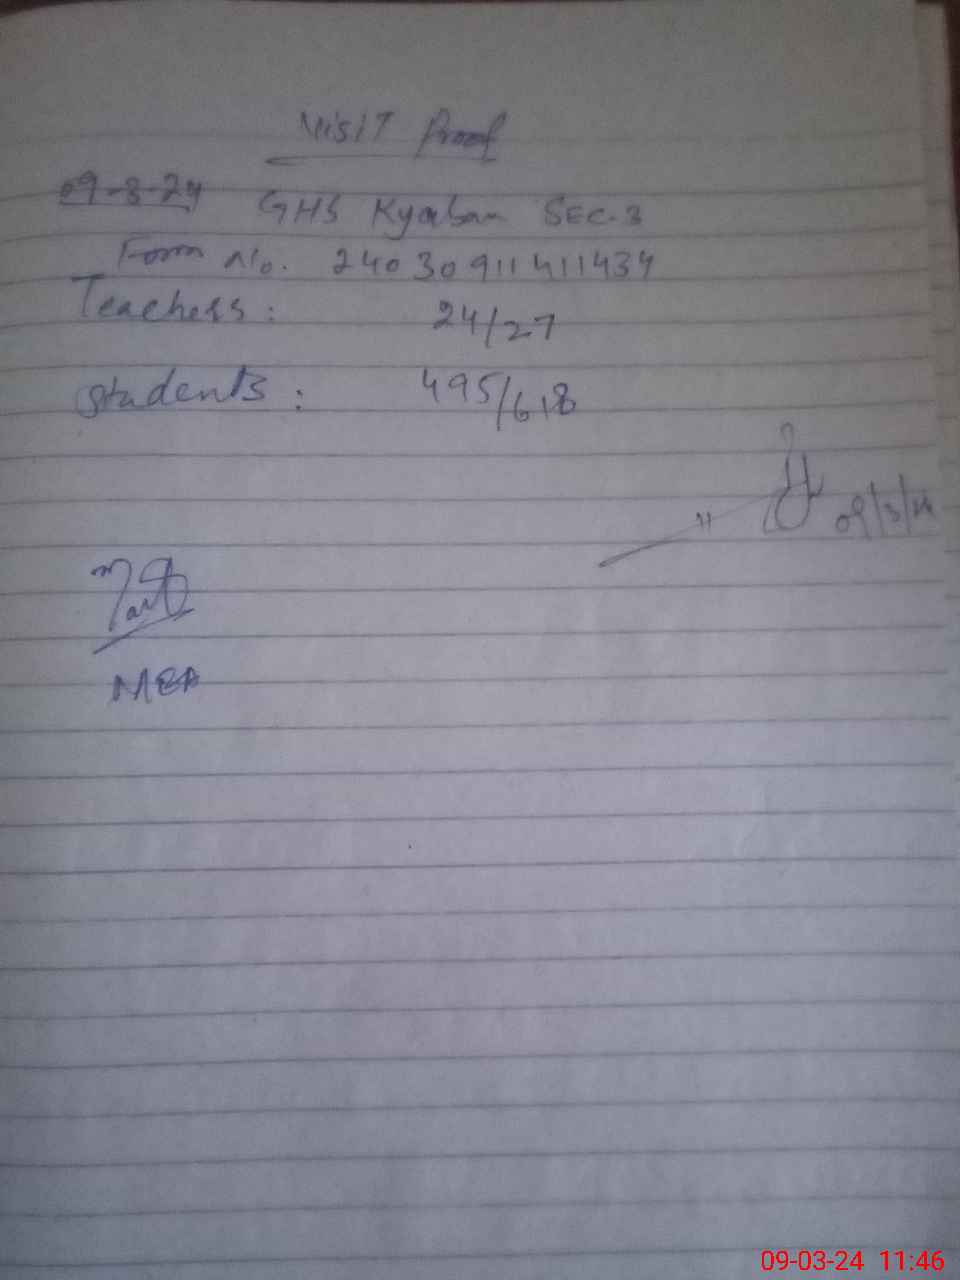 Visit Proof
09-3-24 GHS Kyaban SEC-3
Form No. 24030911411434
Teachers: 24/27
Students: 495/618
09/3/24
MEA
09-03-24 11:46